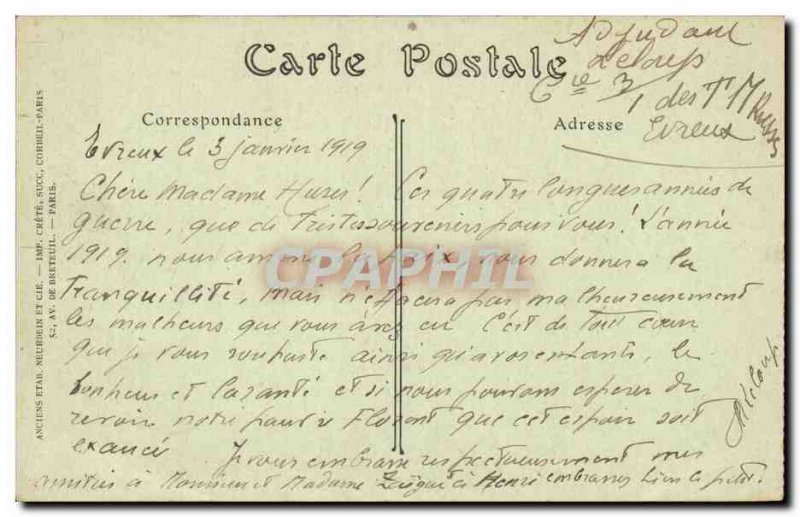 Carte Postale
Adjudant
Deloup
Cie 3/1 des TM Russes
Evreux
Correspondance
Adresse
Evreux le 3 janvier 1919
Chère Madame Hures! Ces quatre longues années de
guerre, que de tristes souvenirs pour vous! L'année
1919. nous amène la paix vous donnera la
tranquillité, mais n'effacera pas malheureusement
les malheurs que vous avez eu C'est de tout coeur
que je vous souhaite ainsi qu'à vos enfants, le
bonheur et la santé et si nous pouvons espérer de
revoir notre pauvre Florent que cet espoir soit
exaucé Je vous embrasse respectueusement mes
amitiés à Monsieur et Madame à Henri embrassez bien le petit.
Deloup
ANCIENS ETAB. NEURDEIN ET CIE. — IMP. CRÉTÉ, SUCC, CORBEIL-PARIS
52, AV. DE BRETEUIL. — PARIS.
CPAPHIL